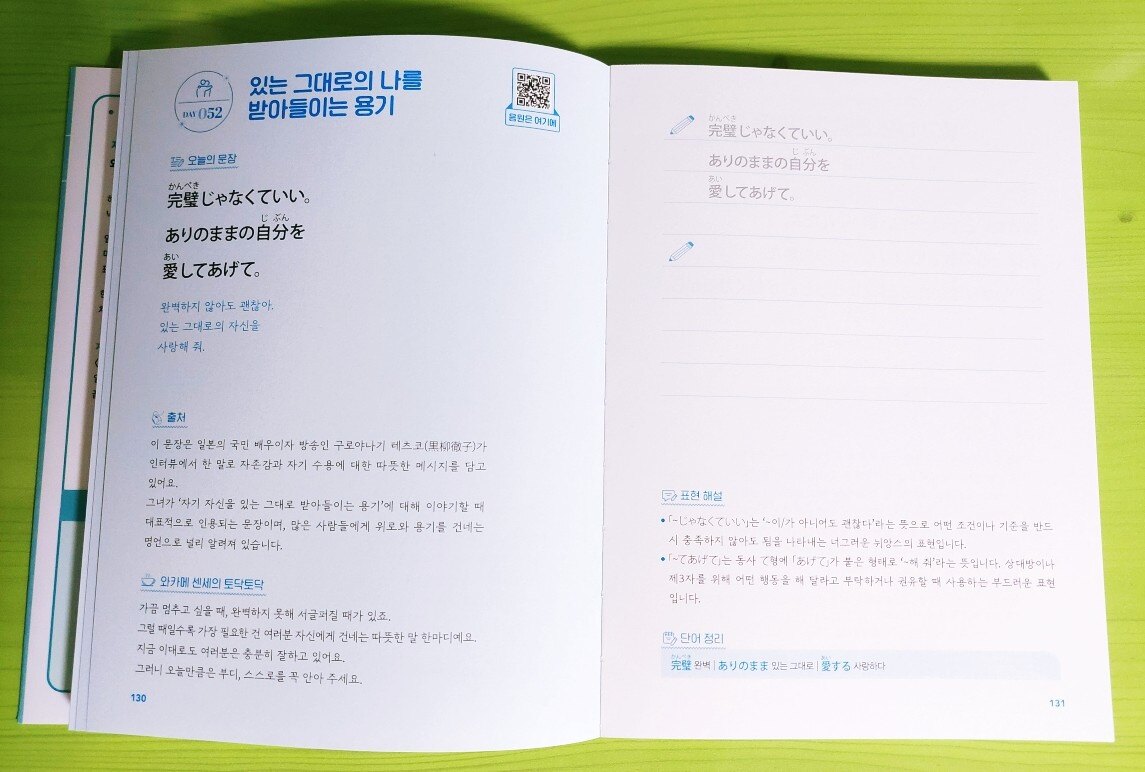 DAY 052
있는 그대로의 나를
받아들이는 용기
음원은 여기에
오늘의 문장
かんぺき
完璧じゃなくていい。
じ ぶん
ありのままの自分を
あい
愛してあげて。
완벽하지 않아도 괜찮아.
있는 그대로의 자신을
사랑해 줘.
출처
이 문장은 일본의 국민 배우이자 방송인 구로야나기 테츠코(黒柳徹子)가
인터뷰에서 한 말로 자존감과 자기 수용에 대한 따뜻한 메시지를 담고
있어요.
그녀가 '자기 자신을 있는 그대로 받아들이는 용기'에 대해 이야기할 때
대표적으로 인용되는 문장이며, 많은 사람들에게 위로와 용기를 건네는
명언으로 널리 알려져 있습니다.
와카메 센세의 토닥토닥
가끔 멈추고 싶을 때, 완벽하지 못해 서글퍼질 때가 있죠.
그럴 때일수록 가장 필요한 건 여러분 자신에게 건네는 따뜻한 말 한마디예요.
지금 이대로도 여러분은 충분히 잘하고 있어요.
그러니 오늘만큼은 부디, 스스로를 꼭 안아 주세요.
130
かんぺき
完璧じゃなくていい。
じ ぶん
ありのままの自分を
あい
愛してあげて。
표현 해설
• 「~じゃなくていい」는 '~이/가 아니어도 괜찮다'라는 뜻으로 어떤 조건이나 기준을 반드
시 충족하지 않아도 됨을 나타내는 너그러운 뉘앙스의 표현입니다.
• 「~てあげて」는 동사 て형에 「あげて」가 붙은 형태로 '~해 줘'라는 뜻입니다. 상대방이나
제3자를 위해 어떤 행동을 해 달라고 부탁하거나 권유할 때 사용하는 부드러운 표현
입니다.
단어 정리
かんぺき あい
完璧 완벽 | ありのまま 있는 그대로 | 愛する 사랑하다
131